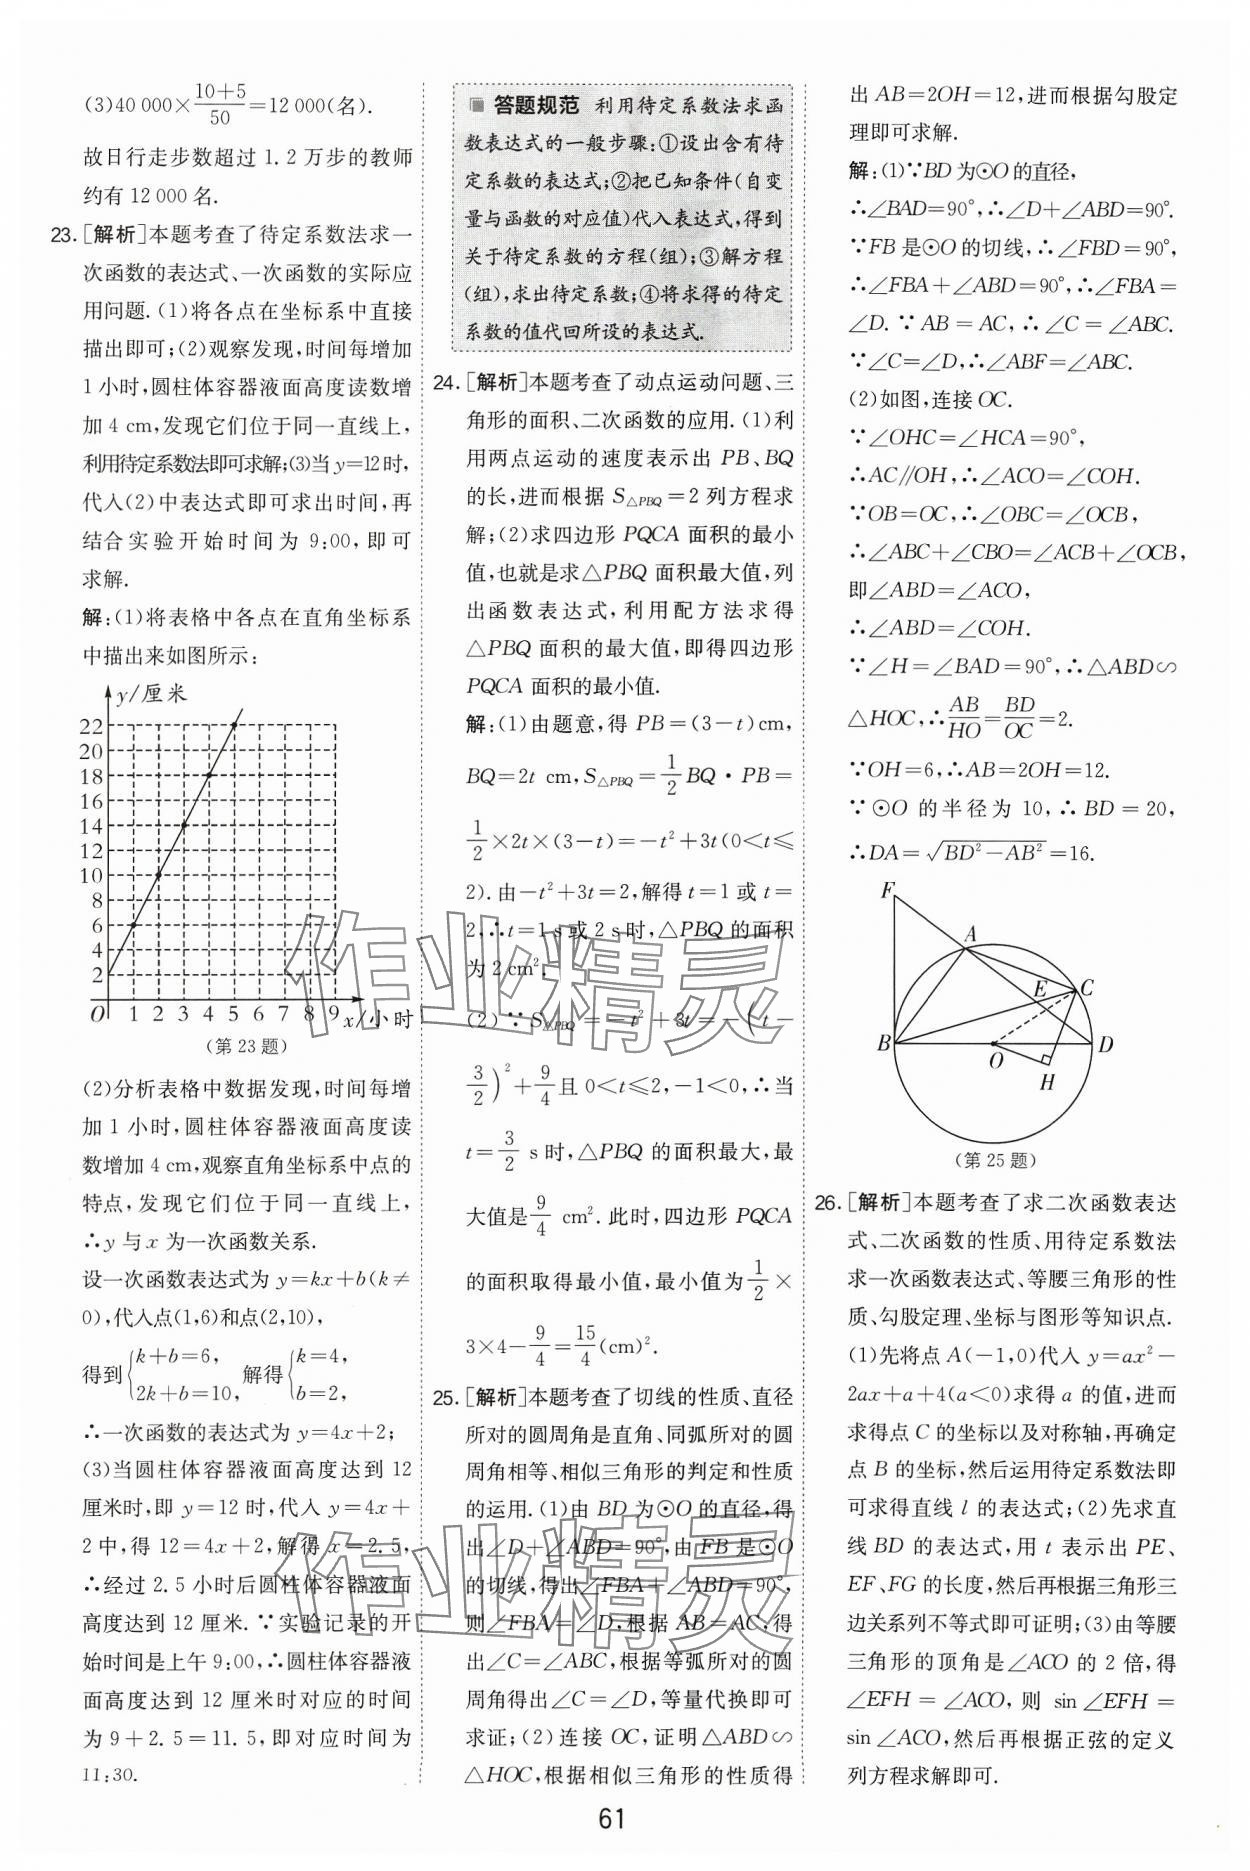 (3)40 000×\frac{10+5}{50}=12 000(名).
故日行走步数超过 1.2 万步的教师
约有 12 000 名.
23.[解析]本题考查了待定系数法求一
次函数的表达式、一次函数的实际应
用问题.(1)将各点在坐标系中直接
描出即可;(2)观察发现,时间每增加
1 小时,圆柱体容器液面高度读数增
加 4 cm,发现它们位于同一直线上,
利用待定系数法即可求解;(3)当 y=12 时,
代入(2)中表达式即可求出时间,再
结合实验开始时间为 9:00,即可
求解.
解:(1)将表格中各点在直角坐标系
中描出来如图所示:
y/厘米
22
20
18
16
14
12
10
8
6
4
2
O 1 2 3 4 5 6 7 8 9 x/小时
(第 23 题)
(2)分析表格中数据发现,时间每增
加 1 小时,圆柱体容器液面高度读
数增加 4 cm,观察直角坐标系中点的
特点,发现它们位于同一直线上,
∴y 与 x 为一次函数关系.
设一次函数表达式为 y=kx+b(k≠
0),代入点(1,6)和点(2,10),
得到{k+b=6, 2k+b=10, 解得{k=4, b=2,
∴一次函数的表达式为 y=4x+2;
(3)当圆柱体容器液面高度达到 12
厘米时,即 y=12 时,代入 y=4x+
2 中,得 12=4x+2,解得 x=2.5,
∴经过 2.5 小时后圆柱体容器液面
高度达到 12 厘米.∵实验记录的开
始时间是上午 9:00,∴圆柱体容器液
面高度达到 12 厘米时对应的时间
为 9+2.5=11.5,即对应时间为
11:30.
答题规范 利用待定系数法求函
数表达式的一般步骤:①设出含有待
定系数的表达式;②把已知条件(自变
量与函数的对应值)代入表达式,得到
关于待定系数的方程(组);③解方程
(组),求出待定系数;④将求得的待定
系数的值代回所设的表达式.
24.[解析]本题考查了动点运动问题、三
角形的面积、二次函数的应用.(1)利
用两点运动的速度表示出 PB、BQ
的长,进而根据 S△PBQ=2 列方程求
解;(2)求四边形 PQCA 面积的最小
值,也就是求△PBQ 面积最大值,列
出函数表达式,利用配方法求得
△PBQ 面积的最大值,即得四边形
PQCA 面积的最小值.
解:(1)由题意,得 PB=(3-t)cm,
BQ=2t cm,S△PBQ=\frac{1}{2}BQ·PB=
\frac{1}{2}×2t×(3-t)=-t²+3t(0<t≤
2).由-t²+3t=2,解得 t=1 或 t=
2,∴t=1 s 或 2 s 时,△PBQ 的面积
为 2 cm².
(2)∵S△PBQ=-t²+3t=-(t-
\frac{3}{2})²+\frac{9}{4}且 0<t≤2,-1<0,∴当
t=\frac{3}{2} s 时,△PBQ 的面积最大,最
大值是\frac{9}{4} cm².此时,四边形 PQCA
的面积取得最小值,最小值为\frac{1}{2}×
3×4-\frac{9}{4}=\frac{15}{4}(cm)².
25.[解析]本题考查了切线的性质、直径
所对的圆周角是直角、同弧所对的圆
周角相等、相似三角形的判定和性质
的运用.(1)由 BD 为⊙O 的直径,得
出∠D+∠ABD=90°,由 FB 是⊙O
的切线,得出∠FBA+∠ABD=90°,
则∠FBA=∠D,根据 AB=AC,得
出∠C=∠ABC,根据等弧所对的圆
周角得出∠C=∠D,等量代换即可
求证;(2)连接 OC,证明△ABD∽
△HOC,根据相似三角形的性质得
出 AB=2OH=12,进而根据勾股定
理即可求解.
解:(1)∵BD 为⊙O 的直径,
∴∠BAD=90°,∴∠D+∠ABD=90°.
∵FB 是⊙O 的切线,∴∠FBD=90°,
∴∠FBA+∠ABD=90°,∴∠FBA=
∠D.∵AB=AC,∴∠C=∠ABC.
∵∠C=∠D,∴∠ABF=∠ABC.
(2)如图,连接 OC.
∵∠OHC=∠HCA=90°,
∴AC∥OH,∴∠ACO=∠COH.
∵OB=OC,∴∠OBC=∠OCB,
∴∠ABC+∠CBO=∠ACB+∠OCB,
即∠ABD=∠ACO,
∴∠ABD=∠COH.
∵∠H=∠BAD=90°,∴△ABD∽
△HOC,∴\frac{AB}{HO}=\frac{BD}{OC}=2.
∵OH=6,∴AB=2OH=12.
∵⊙O 的半径为 10,∴BD=20,
∴DA=\sqrt{BD²-AB²}=16.
F
A
E C
B O D
H
(第 25 题)
26.[解析]本题考查了求二次函数表达
式、二次函数的性质、用待定系数法
求一次函数表达式、等腰三角形的性
质、勾股定理、坐标与图形等知识点.
(1)先将点 A(-1,0)代入 y=ax²-
2ax+a+4(a<0)求得 a 的值,进而
求得点 C 的坐标以及对称轴,再确定
点 B 的坐标,然后运用待定系数法即
可求得直线 l 的表达式;(2)先求直
线 BD 的表达式,用 t 表示出 PE、
EF、FG 的长度,然后再根据三角形三
边关系列不等式即可证明;(3)由等腰
三角形的顶角是∠ACO 的 2 倍,得
∠EFH=∠ACO,则 sin∠EFH=
sin∠ACO,然后再根据正弦的定义
列方程求解即可.
作业精灵
作业精灵
61